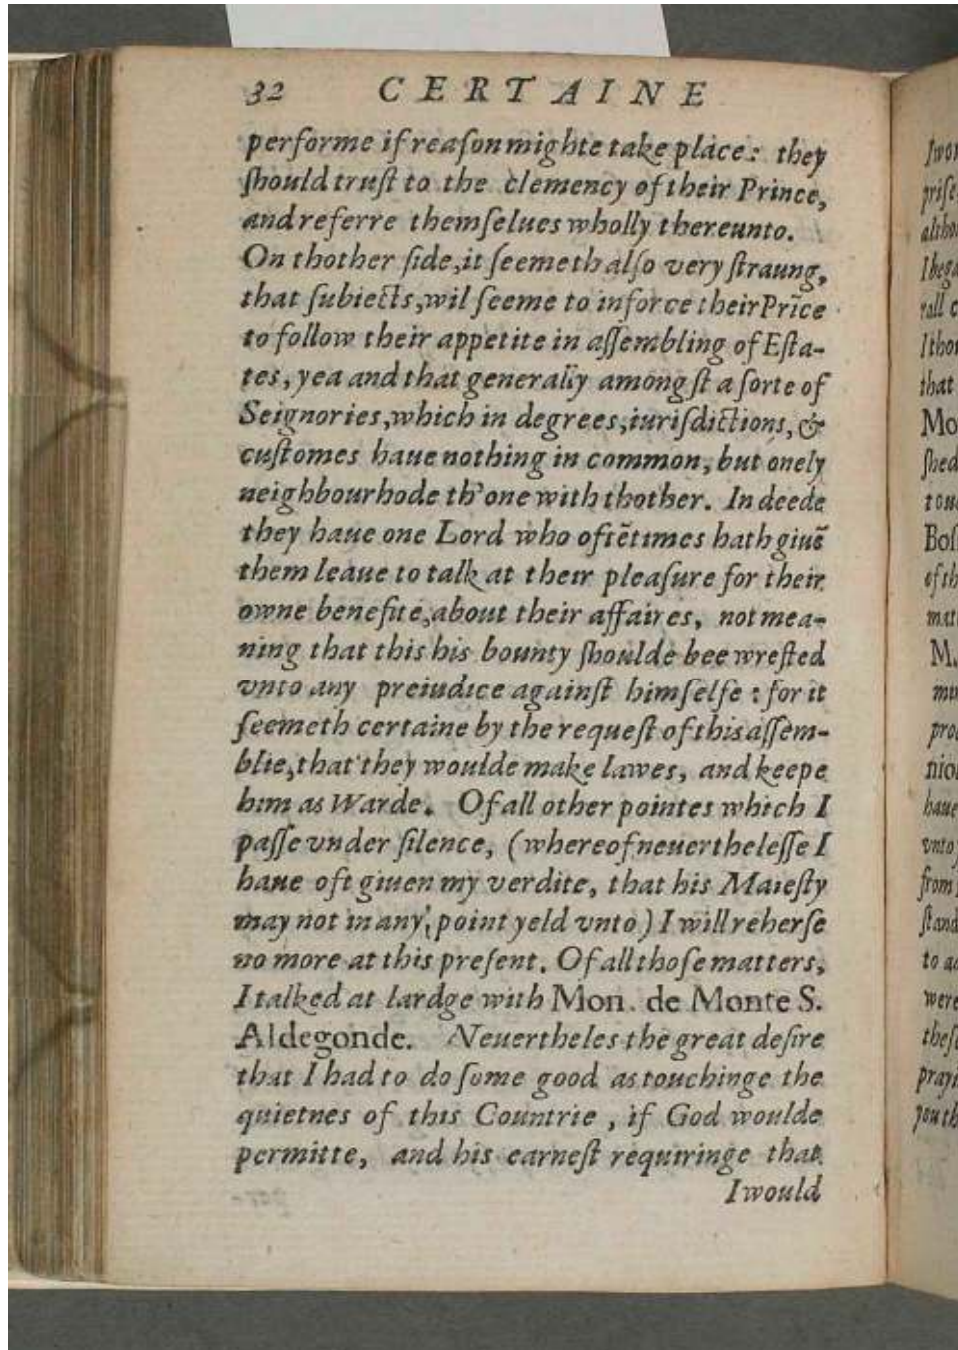 32 CERTAINE
performe if reaſon mighte take place: they
ſhould truſt to the clemency of their Prince,
and referre themſelues wholly thereunto.
On thother ſide, it ſeemeth alſo very ſtraung,
that ſubiects, wil ſeeme to inforce their Prīce
to follow their appetite in aſſembling of Eſta-
tes, yea and that generally amongſt a ſorte of
Seignories, which in degrees, iuriſdictions, &
cuſtomes haue nothing in common, but onely
neighbourhode th'one with thother. In deede
they haue one Lord who oftētimes hath giuē
them leaue to talk at their pleaſure for their
owne benefite, about their affaires, not mea-
ning that this his bounty ſhoulde bee wreſted
vnto any preiudice againſt himſelfe: for it
ſeemeth certaine by the requeſt of this aſſem-
blie, that they woulde make lawes, and keepe
him as Warde. Of all other pointes which I
paſſe vnder ſilence, (whereof neuertheleſſe I
haue oft giuen my verdite, that his Maieſty
may not in any, point yeld vnto) I will reherſe
no more at this preſent. Of all thoſe matters,
I talked at lardge with Mon. de Monte S.
Aldegonde. Neuertheles the great deſire
that I had to do ſome good as touchinge the
quietnes of this Countrie, if God woulde
permitte, and his earneſt requiringe that
I would